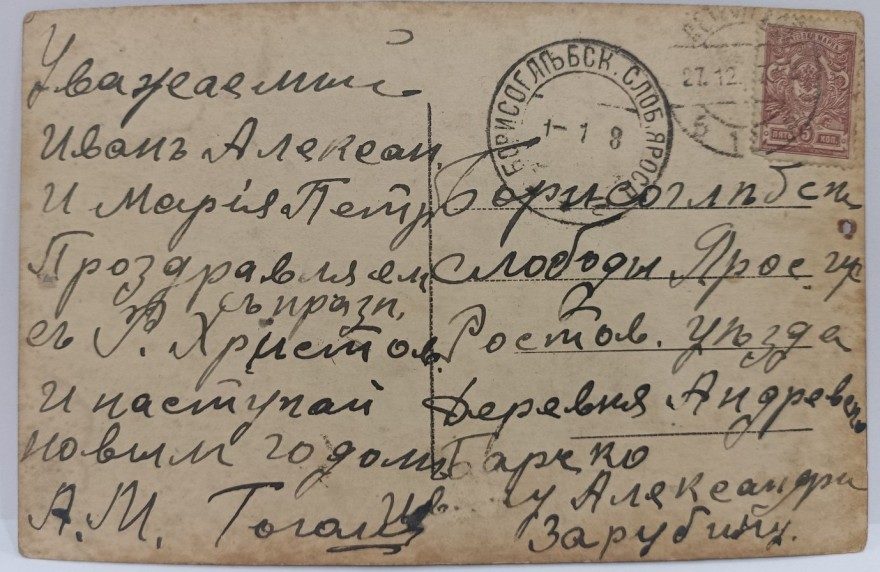 Уважаемий
Иванъ Алексан.
И Марія Петр
Проздравляем
съ празн.
съ Р. Христов.
И наступай
новым годомъ
А. М.
БОРИСОГЛѢБСК. СЛОБ. ЯРОСЛ.
1 - 1 8
27.12.
5 1
ПЯТЬ 5 КОП.
Борисоглѣбск
Слободы Ярос гу
Ростов. уѣзда
Деревня Андревско
у Александри
Зарубину.